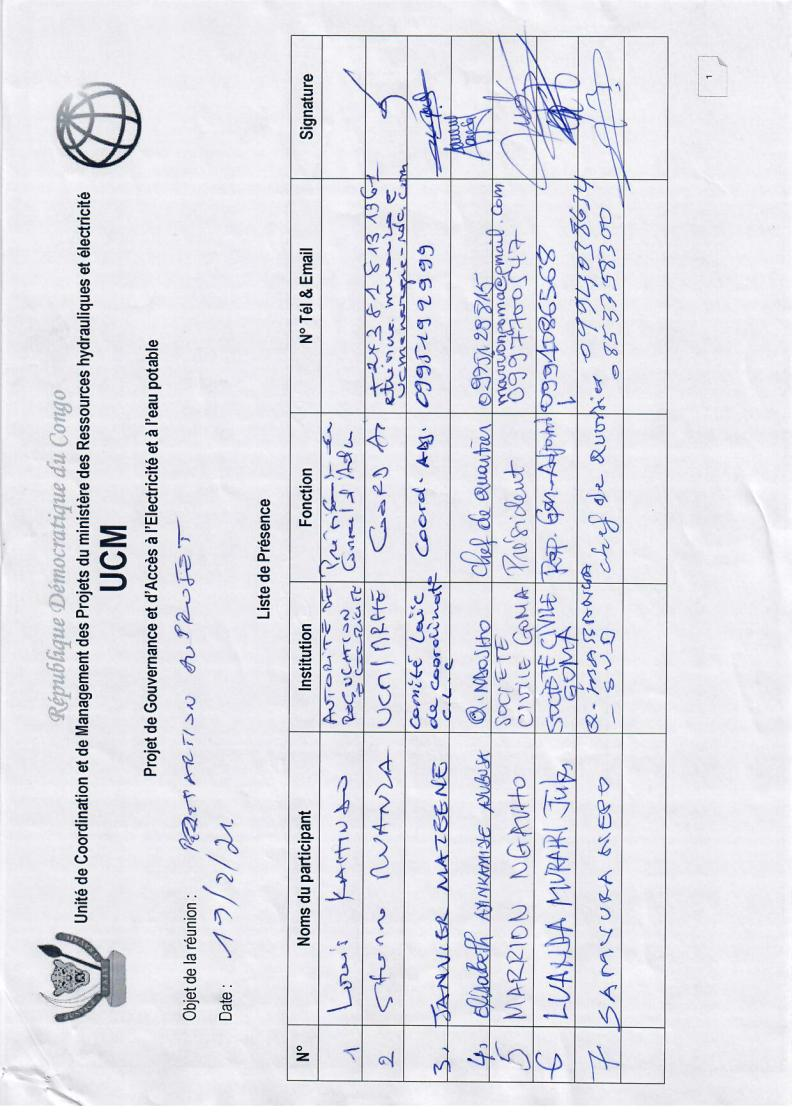 République Démocratique du Congo
Unité de Coordination et de Management des Projets du ministère des Ressources hydrauliques et électricité
UCM
Projet de Gouvernance et d'Accès à l'Electricité et à l'eau potable
Objet de la réunion : AU PROJET
Date : 19/2/21
Liste de Présence
N° Noms du participant Institution Fonction N° Tél & Email Signature
1 Louis KAHINDO AUTORITE DE REGULATION Président du Conseil d'Adm
2 RWANZA UCM COORD +243818131961
3. JANVIER MATEENE Comité Laïc de Coordination CLC Coord. Adj. 0995192999
4. Elisabeth Q. NDOSHO Chef de quartier 0975128815
5 MARRION NGAVHO SOCIETE CIVILE GOMA Président marriongoma@gmail.com 0997700547
6 LUANDA MURAHI SOCIETE CIVILE GOMA 0994086568
7 SAMVURA Q. MABANGA - SUD Chef de Quartier 0994038634 0853358300
1